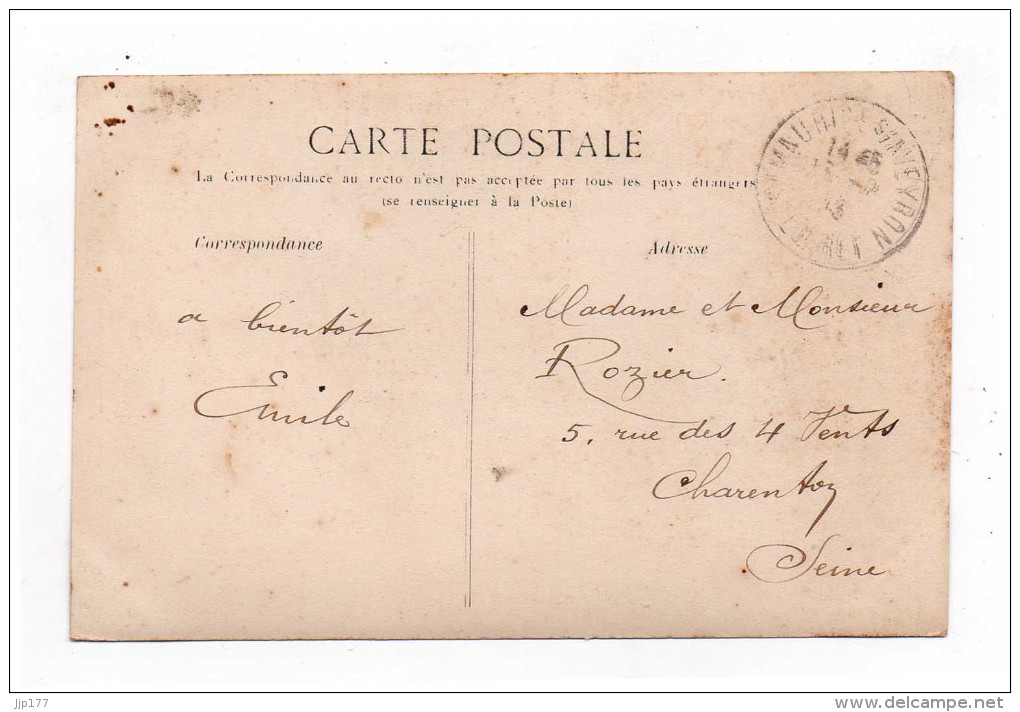 CARTE POSTALE
La Correspondance au recto n'est pas acceptée par tous les pays étrangers
(se renseigner à la Poste)
Correspondance
Adresse
MAURICE S/AVEYRON
LOIRET
13
a bientôt
Emile
Madame et Monsieur
Rozier.
5, rue des 4 Vents
Charenton
Seine
jjp177
www.delcampe.net